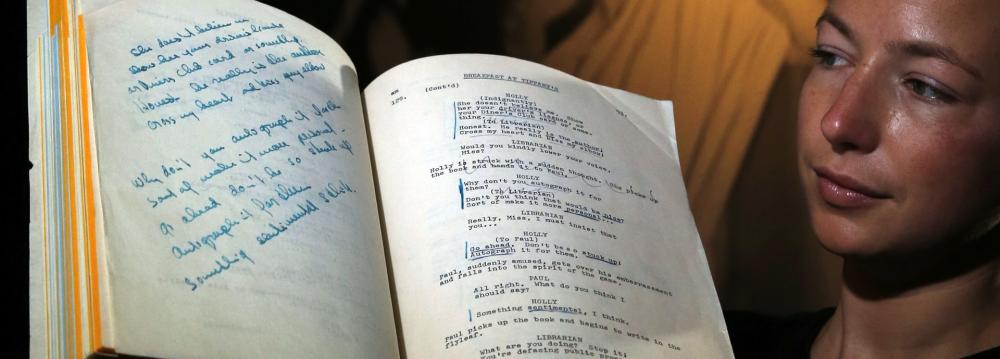 She doesn't believe
show her your driver's license
or Diners Club card or something.
Honest. He really is the author
cross my heart and kiss my elbow
Why don't you autograph it for
sort of make it more personal -
go ahead don't be so stuck up
Autograph it for them
Something sentimental I think.
BREAKFAST AT TIFFANY'S
(Cont'd)
HOLLY
(Indignantly)
She doesn't believe me. Show
her your driver's license or
your Diner's Club card or some-
thing.
(To Librarian)
Honest. He really is the author;
Cross my heart and kiss my elbow;
LIBRARIAN
Would you kindly lower your voice,
Miss?
Holly is struck with a sudden thought. She picks up
the book and hands it to Paul.
HOLLY
Why don't you autograph it for
them?
(To Librarian)
Don't you think that would be nice?
Sort of make it more personal...
LIBRARIAN
Really, Miss, I must insist that
you...
HOLLY
(To Paul)
Go ahead. Don't be so stuck up;
Autograph it for them.
Paul, suddenly amused, gets over his embarrassment
and falls into the spirit of the game.
PAUL
All right. What do you think I
should say?
HOLLY
Something sentimental, I think.
Paul picks up the book and begins to write in the
flyleaf.
LIBRARIAN
What are you doing? Stop it;
You're defacing public